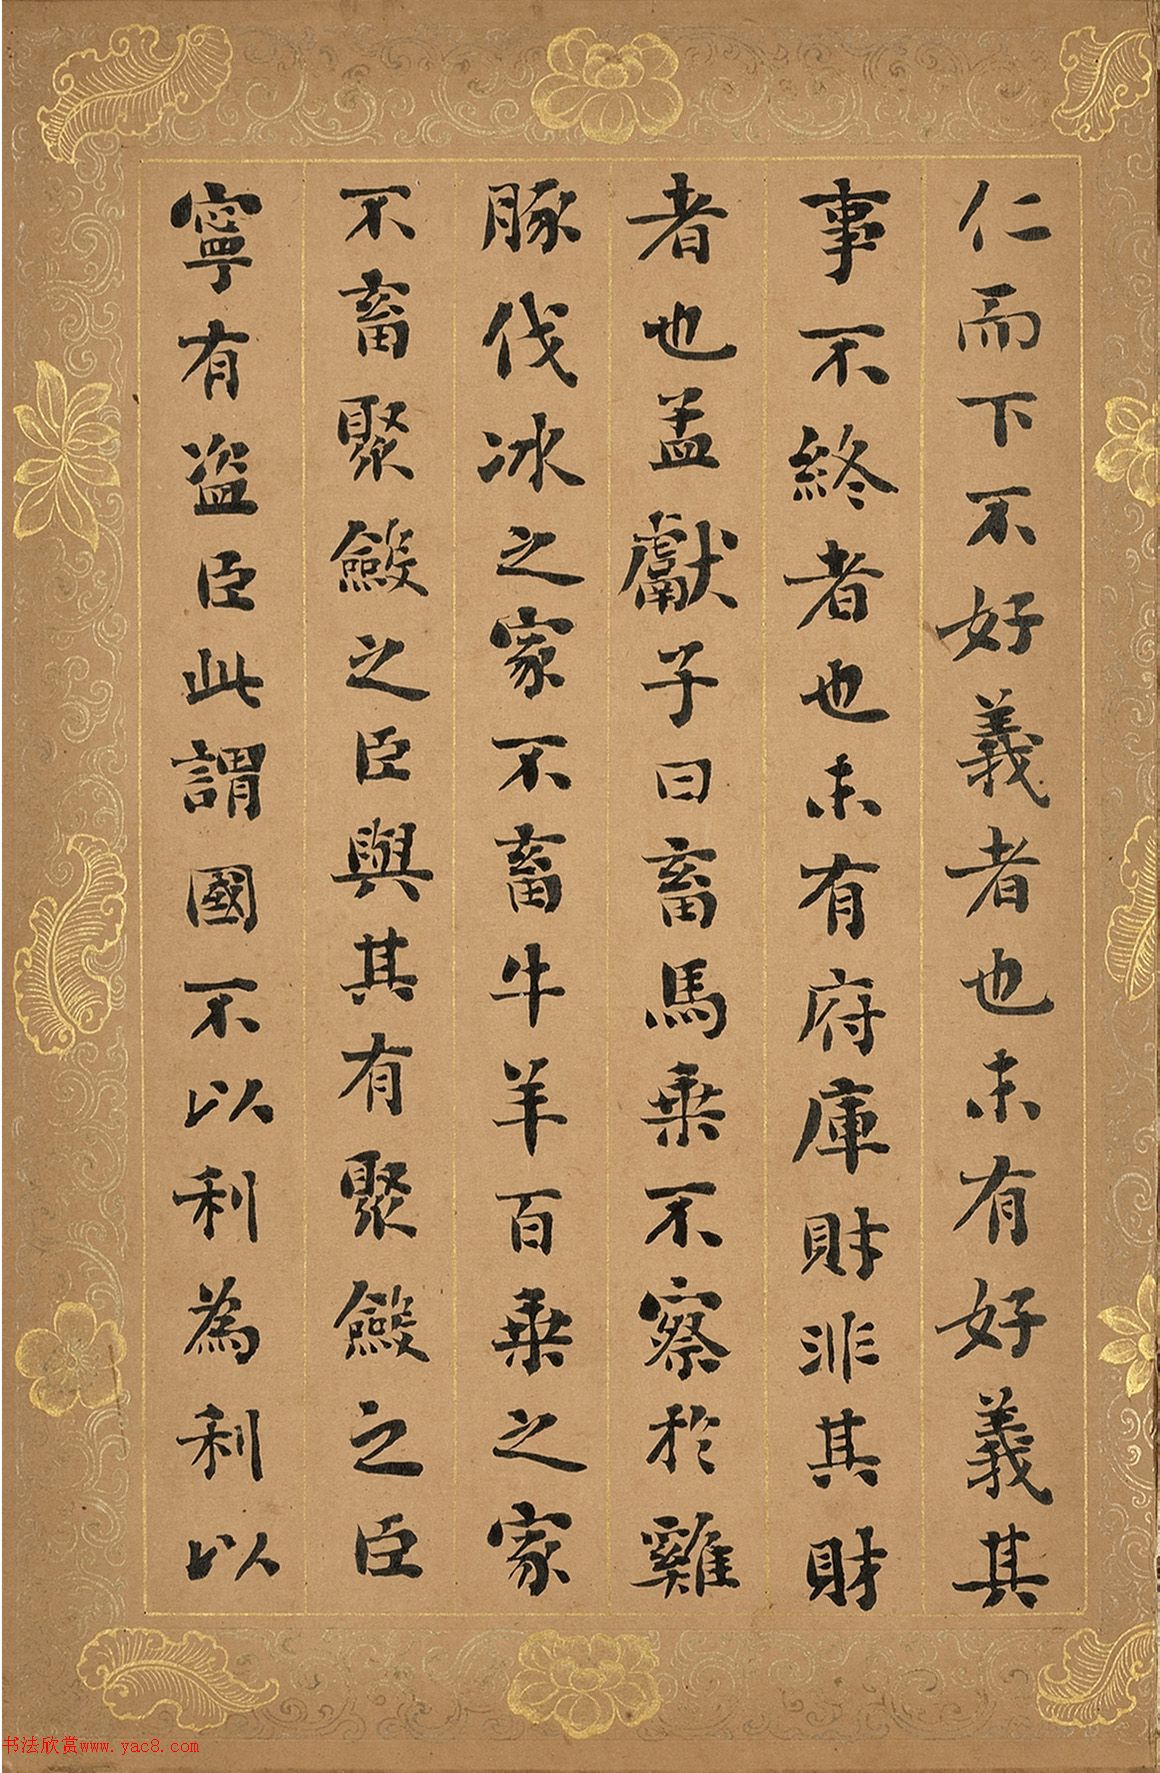 仁而下不好義者也未有好義其
事不終者也未有府庫財非其財
者也孟獻子曰畜馬乗不察於雞
豚伐冰之家不畜牛羊百乗之家
不畜聚斂之臣與其有聚斂之臣
寧有盗臣此謂國不以利為利以
书法欣赏www.yac8.com